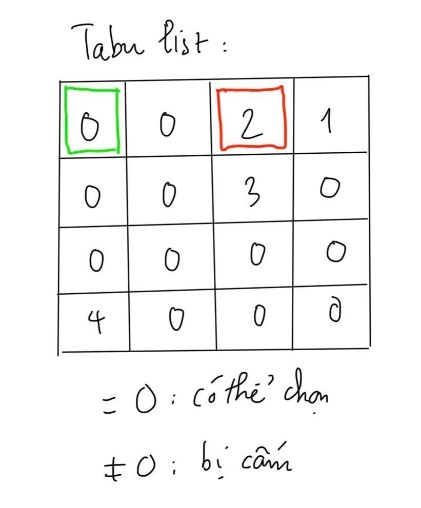 Tabu list:
0 0 2 1
0 0 3 0
0 0 0 0
4 0 0 0
= 0 : có thể chọn
≠ 0 : bị cấm